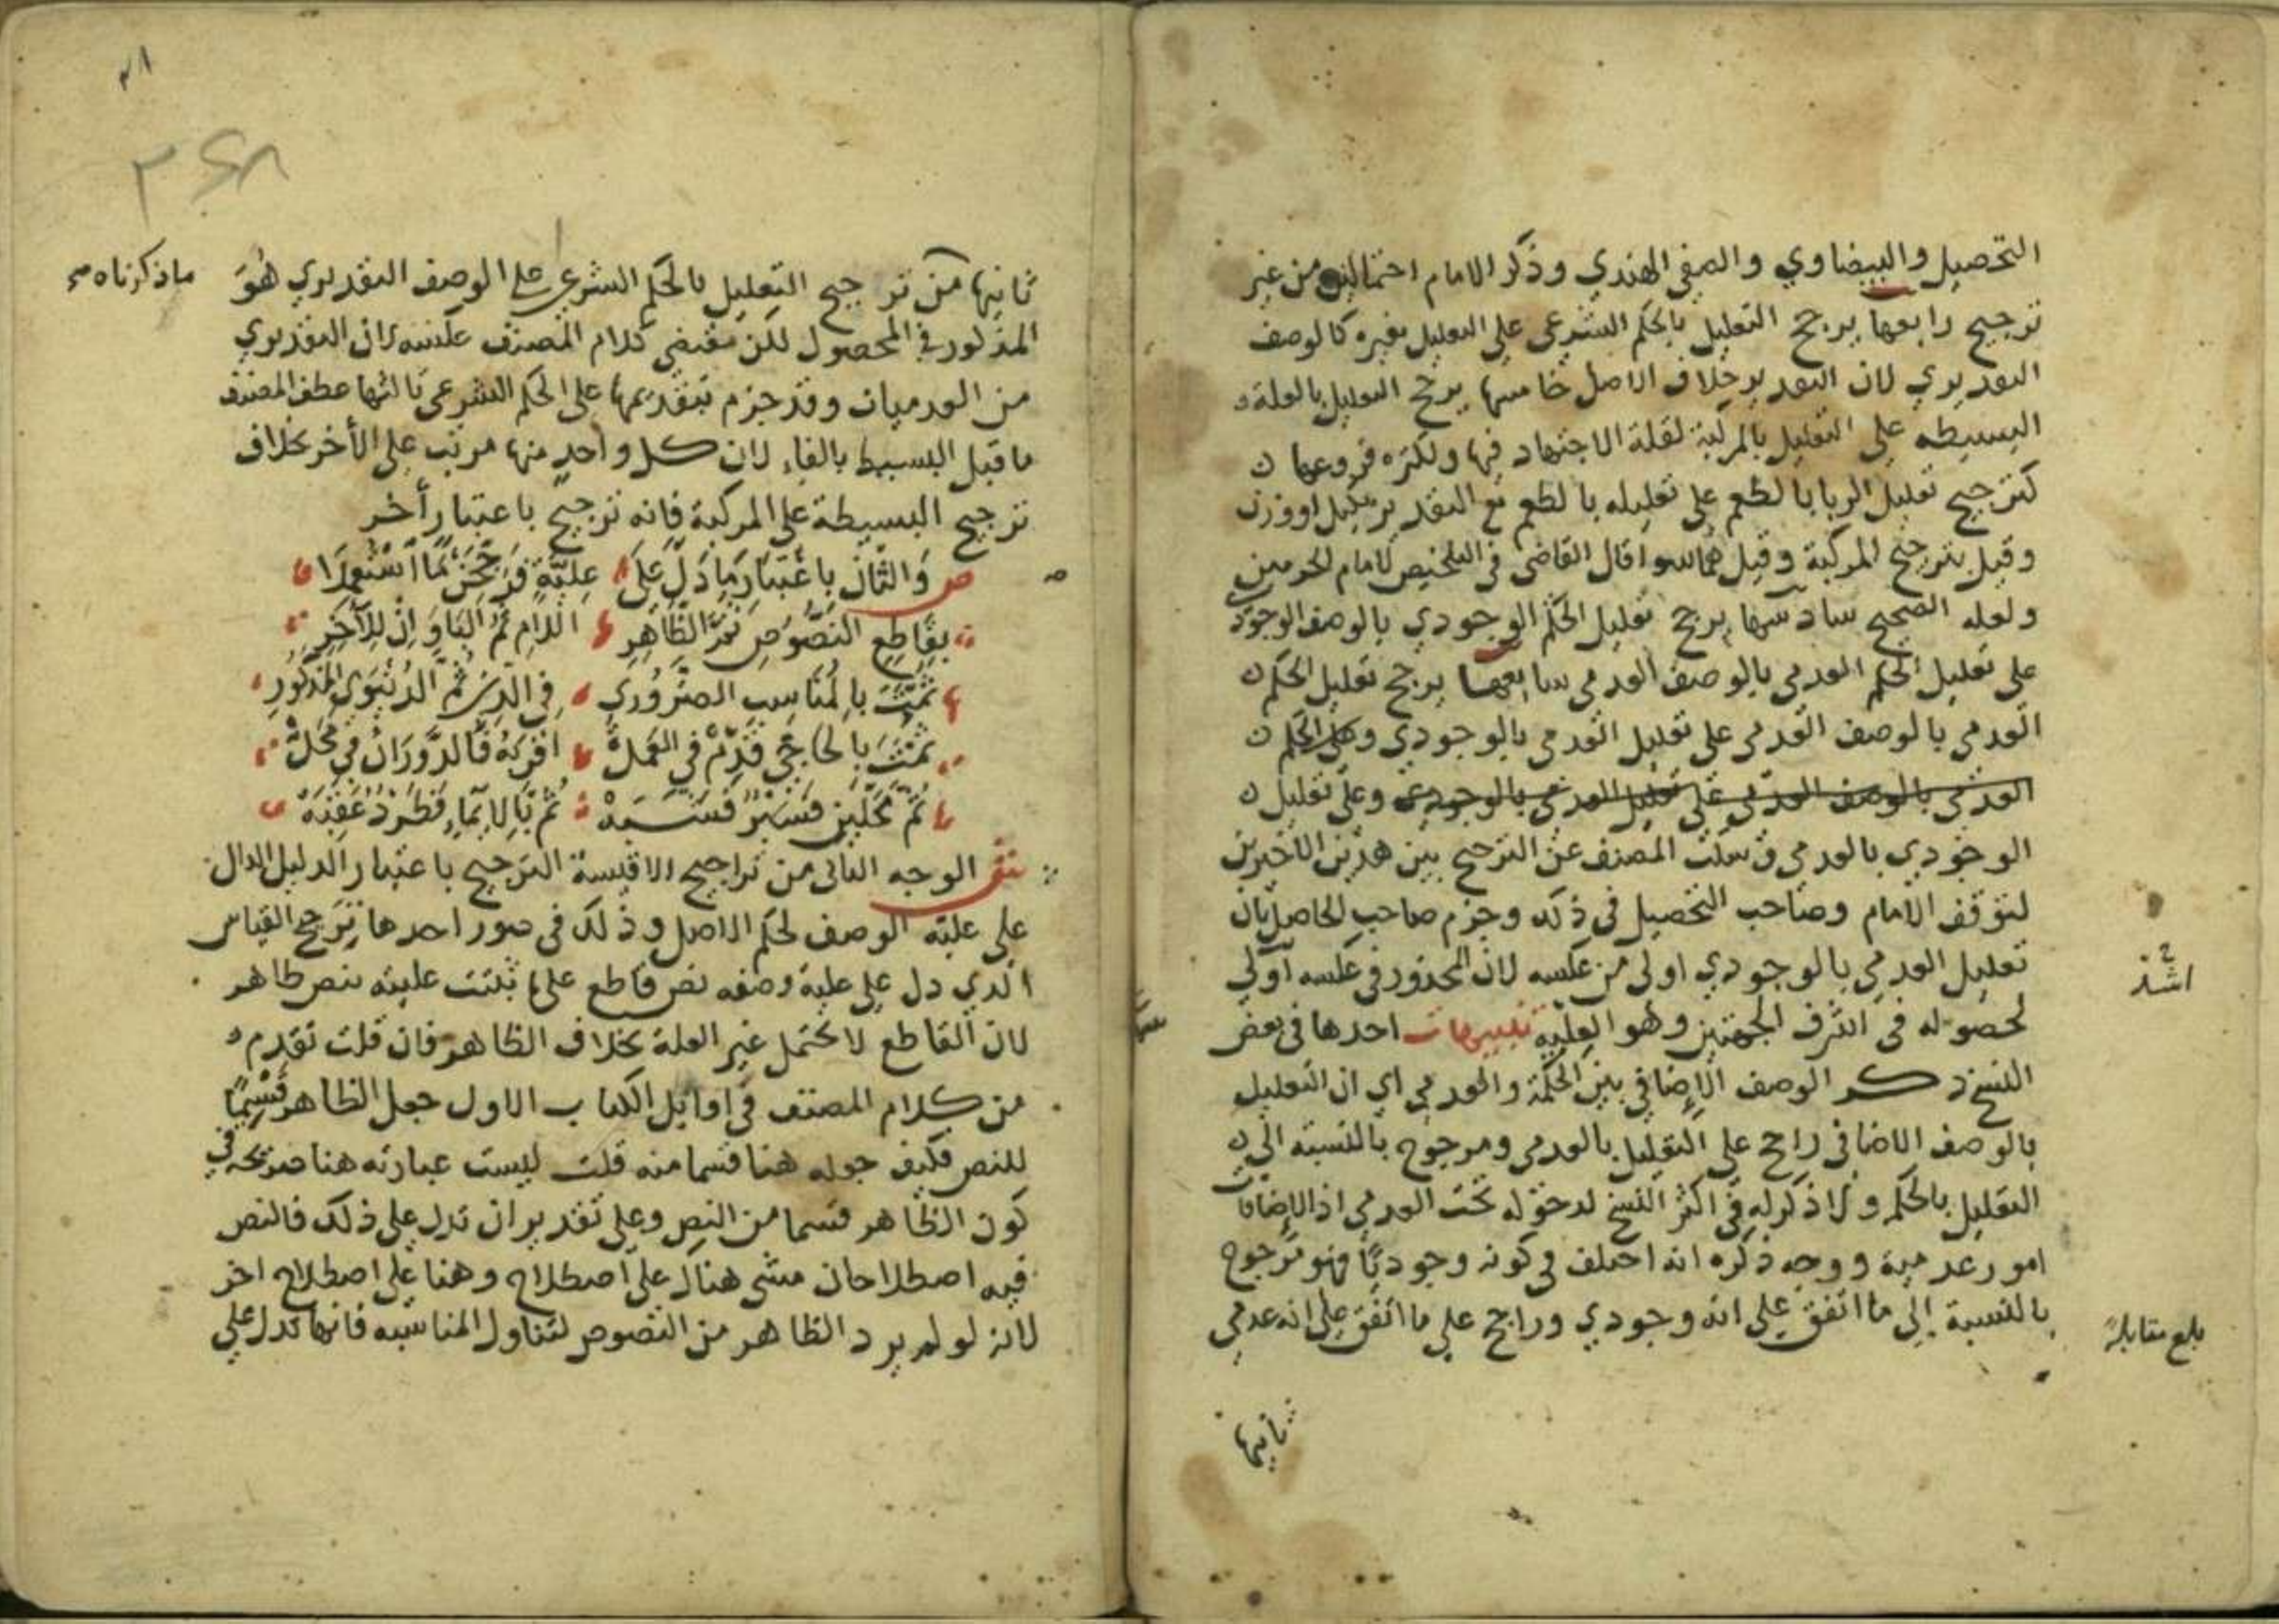 التحصيل والبيضاوي والصفي الهندي وذكر الامام احتمالين من غير
ترجيح رابعها يرجح التعليل بالحكم الشرعي على التعليل بغيره كالوصف
التقديري لان التقدير خلاف الاصل خامسها يرجح التعليل بالعلة
البسيطه على التعليل بالمركبة لقلة الاجتهاد فيها ولكثره فروعها
كترجيح تعليل الربا بالطعم على تعليله بالطعم مع التقدير بكيل او وزن
وقيل بترجيح المركبة وقيل هما سوا قال القاضي في التلخيص لامام الحرمين
ولعله الصحيح سادسها يرجح تعليل الحكم الوجودي بالوصف الوجودي
على تعليل الحكم العدمي بالوصف العدمي سابعها يرجح تعليل الحكم
العدمي بالوصف العدمي على تعليل العدمي بالوجودي وعلى الحكم
العدمي بالوصف العدمي على تعليل العدمي بالوجودي وعلى تعليل
الوجودي بالعدمي وسكت المصنف عن الترجيح بين هذين الاخيرين
لتوقف الامام وصاحب التحصيل في ذلك وجزم صاحب الحاصل بان
تعليل العدمي بالوجودي اولى من عكسه لان المحذور في عكسه أولى
اشد
لحصوله في اشرف الجهتين وهو العلية تنبيهات احدها في بعض
النسخ ذكر الوصف الإضافي بين الحكمة والعدمي اي ان التعليل
بالوصف الاضافي راجح على التعليل بالعدمي ومرجوح بالنسبة الى
التعليل بالحكمة ولا ذكر له في اكثر النسخ لدخوله تحت العدمي اذ الإضافات
امور عدمية ووجه ذكره انه اختلف في كونه وجوديا فهو مرجوح
بالنسبة إلى ما اتفق على انه وجودي وراجح على ما اتفق على انه عدمي
بلغ مقابلة
ثانيها
٣٤٨
ثانيها من ترجيح التعليل بالحكم الشرعي على الوصف التقديري هو
ما ذكرناه صح
المذكور في المحصول لكن مقتضى كلام المصنف عكسه لان التقديري
من العدميات وقد جزم بتقديمها على الحكم الشرعي ثالثها عطف المصنف
ما قبل البسيط بالفاء لان كل واحد منها مرتب على الأخر بخلاف
ترجيح البسيطة على المركبة فانه ترجيح باعتبار أخر
ص وَالثَّان بِاعْتِبَارِ مَا دَلَّ عَلَى عِلِّيَّةٍ فَرَجِّحَنْ مَا اسْتُعْمِلَا
بِقَاطِعِ النُّصُوصِ ثُمَّ الظَّاهِرِ اللام ثُمَّ البَا وَإِنْ لِلآخِرِ
ثُمَّتَ بِالمُنَاسِبِ الضَّرُورِي فِي الدِّينِ ثُمَّ الدُّنْيَوِيِّ المَذْكُورِ
ثُمَّتَ بِالحَاجِيِّ قَدِّمْ فِي العَمَلْ أَقْرَبَهُ فَالدَّوَرَانُ فِي مَحَلّْ
ثُمَّ مَحَلَّيْنِ فَسَبْرٌ فَشَبَهْ ثُمَّ بِالإيمَاءِ فَطَرْدٌ عَقِبَهْ
ش الوجه الثاني من تراجيح الاقيسة الترجيح باعتبار الدليل الدال
على علية الوصف لحكم الاصل وذلك في صور احدها ترجح القياس
الذي دل على علية وصفه نص قاطع على ما ثبتت عليته بنص ظاهر
لان القاطع لا يحتمل غير العلة بخلاف الظاهر فان قلت تقدم
من كلام المصنف في اوايل الكتاب الاول جعل الظاهر قسيمًا
للنص فكيف جعله هنا قسما منه قلت ليست عبارته هنا صريحه في
كون الظاهر قسما من النص وعلى تقدير ان تدل على ذلك فالنص
فيه اصطلاحان مشى هناك على اصطلاح وهنا على اصطلاح اخر
لانه لو لم يرد الظاهر من النصوص لتناول المناسبه فانها تدل على